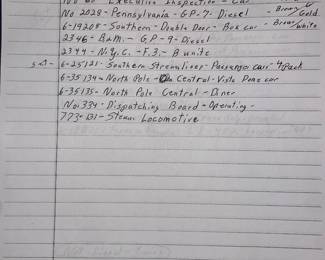 No 68 - Executive Inspection - Car
No 2028 - Pennsylvania - GP-7 - Diesel - Gold
6-19208 - Southern - Double Door - Box car - White
2346 - B&M. - G.P-9 - Diesel
2344 - N.Y.C. - F.3 - B unit
set - 6-25121 - Southern Streamliner - Passenger car 4 Pack
6-35134 - North Pole Central - Vista Dome car
6-35135 - North Pole Central - Diner
No. 334 - Dispatching Board - Operating -
773 - Steam Locomotive